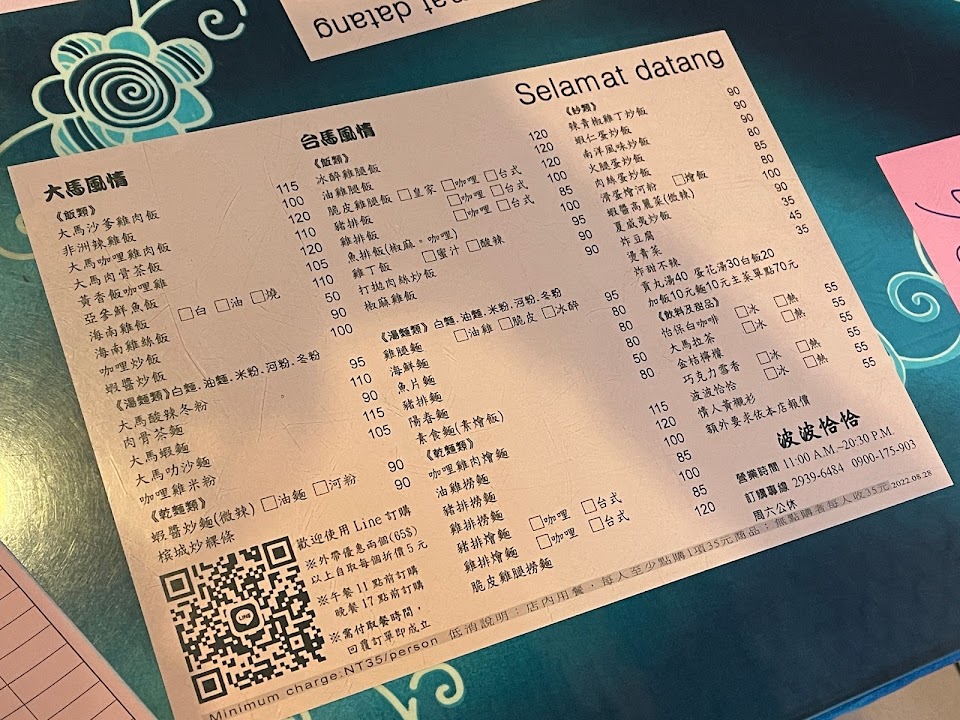 Selamat datang
大馬風情
《飯類》
大馬沙爹雞肉飯 115
非洲辣雞飯 100
大馬咖哩雞肉飯 120
大馬肉骨茶飯 110
黃香飯咖哩雞 120
亞參鮮魚飯 105
海南雞飯 □白 □油 □燒 110
海南雞絲飯 50
咖哩炒飯 90
蝦醬炒飯 100
《湯麵類》白麵.油麵.米粉.河粉.冬粉
大馬酸辣冬粉 95
肉骨茶麵 110
大馬蝦麵 90
大馬叻沙麵 115
咖哩雞米粉 105
《乾麵類》
蝦醬炒麵(微辣) □油麵 □河粉 90
檳城炒粿條 90
歡迎使用 Line 訂購
※外帶優惠兩個(65$)
以上自取每個折價 5 元
※午餐 11 點前訂購
晚餐 17 點前訂購
※需付取餐時間，
回覆訂單即成立
LINE
台馬風情
《飯類》
冰醉雞腿飯 120
油雞腿飯 120
脆皮雞腿飯 □皇家 □咖哩 □台式 120
豬排飯 □咖哩 □台式 100
雞排飯 □咖哩 □台式 85
魚排飯(椒麻。咖哩) 100
雞丁飯 □蜜汁 □酸辣 95
打拋肉絲炒飯 90
椒麻雞飯 90
《湯麵類》白麵.油麵.米粉.河粉.冬粉
雞腿麵 □油雞 □脆皮 □冰醉 95
海鮮麵 80
魚片麵 80
豬排麵 80
陽春麵 50
素食麵(素燴飯) 80
《乾麵類》
咖哩雞肉燴麵 115
油雞撈麵 120
豬排撈麵 100
雞排撈麵 85
豬排燴麵 □咖哩 □台式 100
雞排燴麵 □咖哩 □台式 85
脆皮雞腿撈麵 120
《炒類》
辣青椒雞丁炒飯 90
蝦仁蛋炒飯 90
南洋風味炒飯 90
火腿蛋炒飯 85
肉絲蛋炒飯 80
滑蛋燴河粉 □燴飯 80
蝦醬高麗菜(微辣) 100
夏威夷炒飯 90
炸豆腐 35
燙青菜 45
炸甜不辣 35
貢丸湯40 蛋花湯30白飯20
加飯10元麵10元主菜單點70元
《飲料及甜品》
怡保白咖啡 □冰 □熱 55
大馬拉茶 □冰 □熱 55
金桔檸檬 55
巧克力雪香 □冰 □熱 55
波波恰恰 □冰 □熱 55
情人黃襯衫
額外要求依本店報價
波波恰恰
營業時間 11:00 A.M.~20:30 P.M.
訂購專線 2939-6484 0900-175-903
周六公休
2022.08.28
Minimum charge:NT35/person 低消說明：店內用餐，每人至少點購1項35元商品；無點購者每人收35元